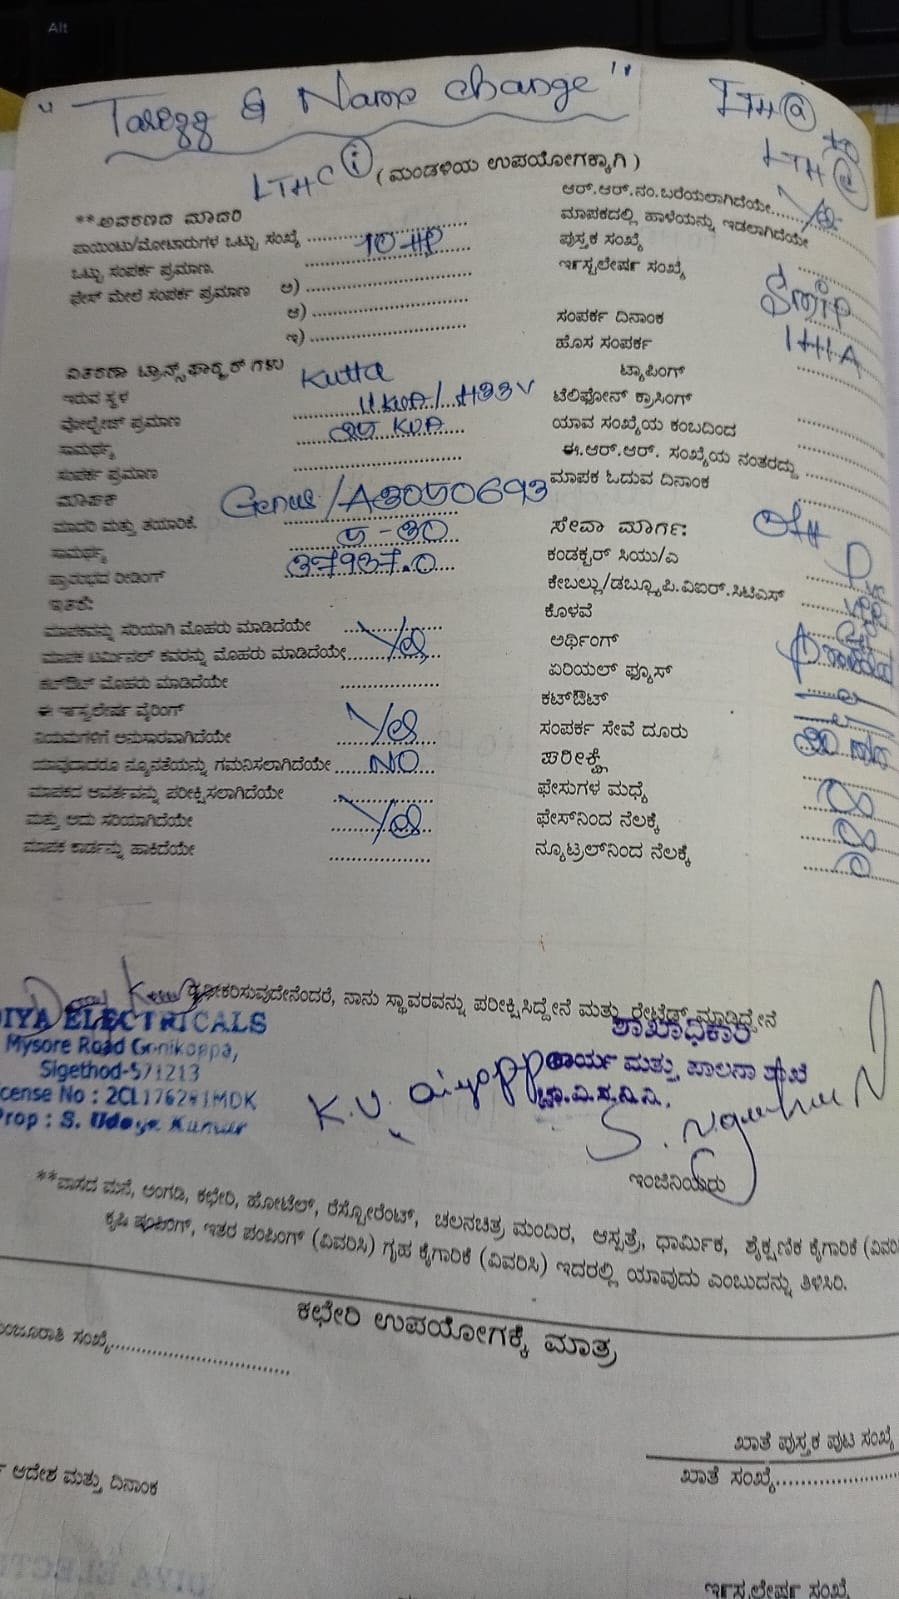 Alt
" Taregg & Name change "
LTHC (i)
(ಮಂಡಳಿಯ ಉಪಯೋಗಕ್ಕಾಗಿ)
**ಅವರಣದ ಮಾದರಿ
ಪಾಯಿಂಟು/ಮೋಟಾರುಗಳ ಒಟ್ಟು ಸಂಖ್ಯೆ
ಒಟ್ಟು ಸಂಪರ್ಕ ಪ್ರಮಾಣ. 10 HP
ಫೇಸ್ ಮೇಲೆ ಸಂಪರ್ಕ ಪ್ರಮಾಣ ಅ)
ಆ)
ಇ)
ವಿತರಣಾ ಟ್ರಾನ್ಸ್‌ಫಾರ್‍ಮರ್ ಗಳು
ಇರುವ ಸ್ಥಳ Kutta
ವೋಲ್ಟೇಜ್ ಪ್ರಮಾಣ
ಸಾಮರ್ಥ್ಯ 25 KVA
ಸಂಪರ್ಕ ಪ್ರಮಾಣ
ಮಾಪಕ
ಮಾದರಿ ಮತ್ತು ತಯಾರಿಕೆ. Genus/A3050693
ಸಾಮರ್ಥ್ಯ 5-30
ಪ್ರಾರಂಭದ ರೀಡಿಂಗ್ 37937.0
ಇತರೆ:
ಮಾಪಕವನ್ನು ಸರಿಯಾಗಿ ಮೊಹರು ಮಾಡಿದೆಯೇ
ಮಾಪಕ ಟರ್ಮಿನಲ್ ಕವರನ್ನು ಮೊಹರು ಮಾಡಿದೆಯೇ Yes
ಕಟ್‌ಔಟ್ ಮೊಹರು ಮಾಡಿದೆಯೇ
ಈ ಇನ್ಸ್ಟಲೇಷನ್ ವೈರಿಂಗ್
ನಿಯಮಗಳಿಗೆ ಅನುಸಾರವಾಗಿದೆಯೇ Yes
ಯಾವುದಾದರೂ ನ್ಯೂನತೆಯನ್ನು ಗಮನಿಸಲಾಗಿದೆಯೇ NO
ಮಾಪಕದ ಆವರ್ತವನ್ನು ಪರೀಕ್ಷಿಸಲಾಗಿದೆಯೇ
ಮತ್ತು ಅದು ಸರಿಯಾಗಿದೆಯೇ Yes
ಮಾಪಕ ಕಾರ್ಡನ್ನು ಹಾಕಿದೆಯೇ
ಆರ್.ಆರ್.ನಂ.ಬರೆಯಲಾಗಿದೆಯೇ
ಮಾಪಕದಲ್ಲಿ ಹಾಳೆಯನ್ನು ಇಡಲಾಗಿದೆಯೇ
ಪುಸ್ತಕ ಸಂಖ್ಯೆ
ಇನ್ಸ್ಟಲೇಷನ್ ಸಂಖ್ಯೆ
ಸಂಪರ್ಕ ದಿನಾಂಕ
ಹೊಸ ಸಂಪರ್ಕ
ಟ್ಯಾಪಿಂಗ್
ಟೆಲಿಫೋನ್ ಕ್ರಾಸಿಂಗ್
ಯಾವ ಸಂಖ್ಯೆಯ ಕಂಬದಿಂದ
ಈ.ಆರ್.ಆರ್. ಸಂಖ್ಯೆಯ ನಂತರದ್ದು
ಮಾಪಕ ಓದುವ ದಿನಾಂಕ
ಸೇವಾ ಮಾರ್ಗ: OH
ಕಂಡಕ್ಟರ್ ಸಿಯು/ಎ
ಕೇಬಲ್ಲು/ಡಬ್ಲ್ಯೂ.ಪಿ.ವಿಐರ್.ಸಿಟಿಎಸ್
ಕೊಳವೆ
ಅರ್ಥಿಂಗ್
ಏರಿಯಲ್ ಫ್ಯೂಸ್
ಕಟ್‌ಔಟ್
ಸಂಪರ್ಕ ಸೇವೆ ದೂರು
ಪರೀಕ್ಷೆ
ಫೇಸುಗಳ ಮಧ್ಯೆ
ಫೇಸ್‌ನಿಂದ ನೆಲಕ್ಕೆ
ನ್ಯೂಟ್ರಲ್‌ನಿಂದ ನೆಲಕ್ಕೆ
ನಾನು ಸ್ಥಾವರವನ್ನು ಪರೀಕ್ಷಿಸಿದ್ದೇನೆ ಮತ್ತು ರೇಟೆಡ್ ಮಾಡಿದ್ದೇನೆ
IYA ELECTRICALS
Mysore Road Gonikoppa,
Sigethod-571213
cense No : 2CL176281MDK
Prop : S. Udaya Kumar
K.V. aiyappa
ಶಾಖಾಧಿಕಾರಿ
ಕಾರ್ಯ ಮತ್ತು ಪಾಲನಾ ಶಾಖೆ
ಚಾ.ವಿ.ಸ.ನಿ.ನಿ.
ಇಂಜಿನಿಯರು
**ವಾಸದ ಮನೆ, ಅಂಗಡಿ, ಕಛೇರಿ, ಹೋಟೆಲ್, ರೆಸ್ಟೋರೆಂಟ್, ಚಲನಚಿತ್ರ ಮಂದಿರ, ಆಸ್ಪತ್ರೆ, ಧಾರ್ಮಿಕ, ಶೈಕ್ಷಣಿಕ ಕೈಗಾರಿಕೆ
ಕೃಷಿ ಪಂಪಿಂಗ್, ಇತರ ಪಂಪಿಂಗ್ (ವಿವರಿಸಿ) ಗೃಹ ಕೈಗಾರಿಕೆ (ವಿವರಿಸಿ) ಇದರಲ್ಲಿ ಯಾವುದು ಎಂಬುದನ್ನು ತಿಳಿಸಿರಿ.
ಕಛೇರಿ ಉಪಯೋಗಕ್ಕೆ ಮಾತ್ರ
ಮಂಜೂರಾತಿ ಸಂಖ್ಯೆ
ಖಾತೆ ಪುಸ್ತಕ ಪುಟ ಸಂಖ್ಯೆ
ಖಾತೆ ಸಂಖ್ಯೆ
ಆದೇಶ ಮತ್ತು ದಿನಾಂಕ
ಇನ್ಸ್ಟಲೇಷನ್ ಸಂಖ್ಯೆ